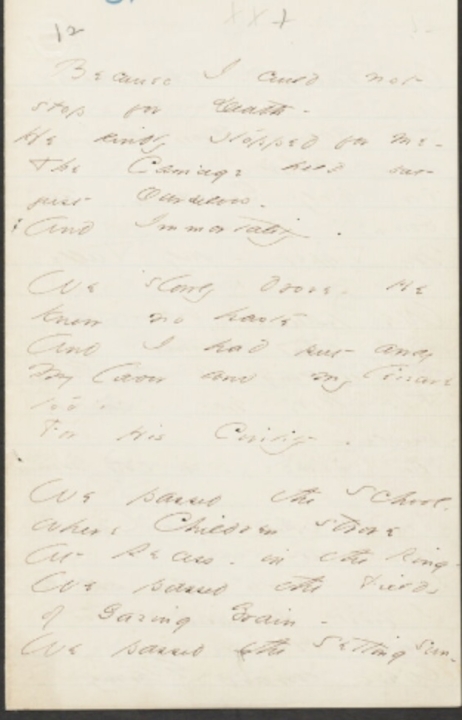 12
Because I could not
stop for Death -
He kindly stopped for me -
The Carriage held but
just Ourselves -
And Immortality.
We slowly drove - He
knew no haste
And I had put away
My labor and my leisure
too,
For His Civility -
We passed the School,
where Children strove
At Recess - in the Ring -
We passed the Fields
of Gazing Grain -
We passed the Setting Sun -